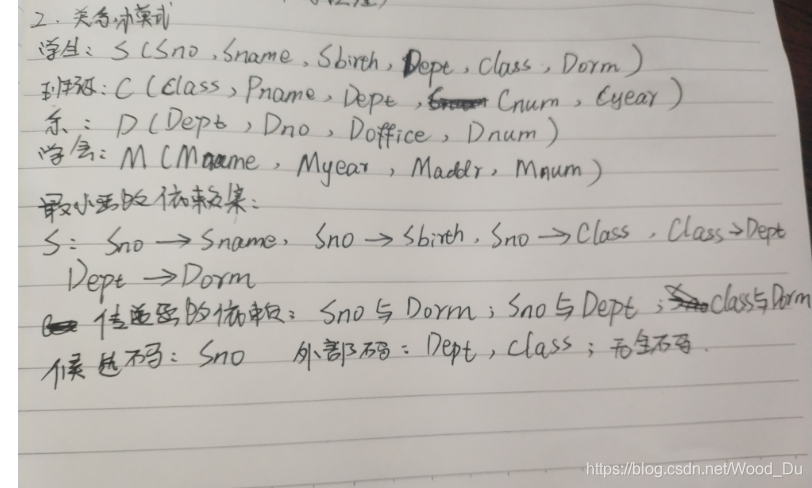 2. 关系模式
学生: S (Sno, Sname, Sbirth, Dept, Class, Dorm)
班级: C (Class, Pname, Dept, Cnum, Cyear)
系: D (Dept, Dno, Doffice, Dnum)
学会: M (Mname, Myear, Maddr, Mnum)
最小函数依赖集:
S: Sno → Sname, Sno → Sbirth, Sno → Class, Class → Dept
Dept → Dorm
传递函数依赖: Sno与Dorm; Sno与Dept; Class与Dorm
候选码: Sno 外部码: Dept, class; 无全码.
https://blog.csdn.net/Wood_Du